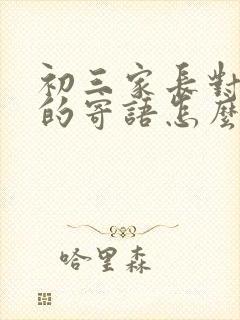 初三家長對
的寄語怎麼
哈里森